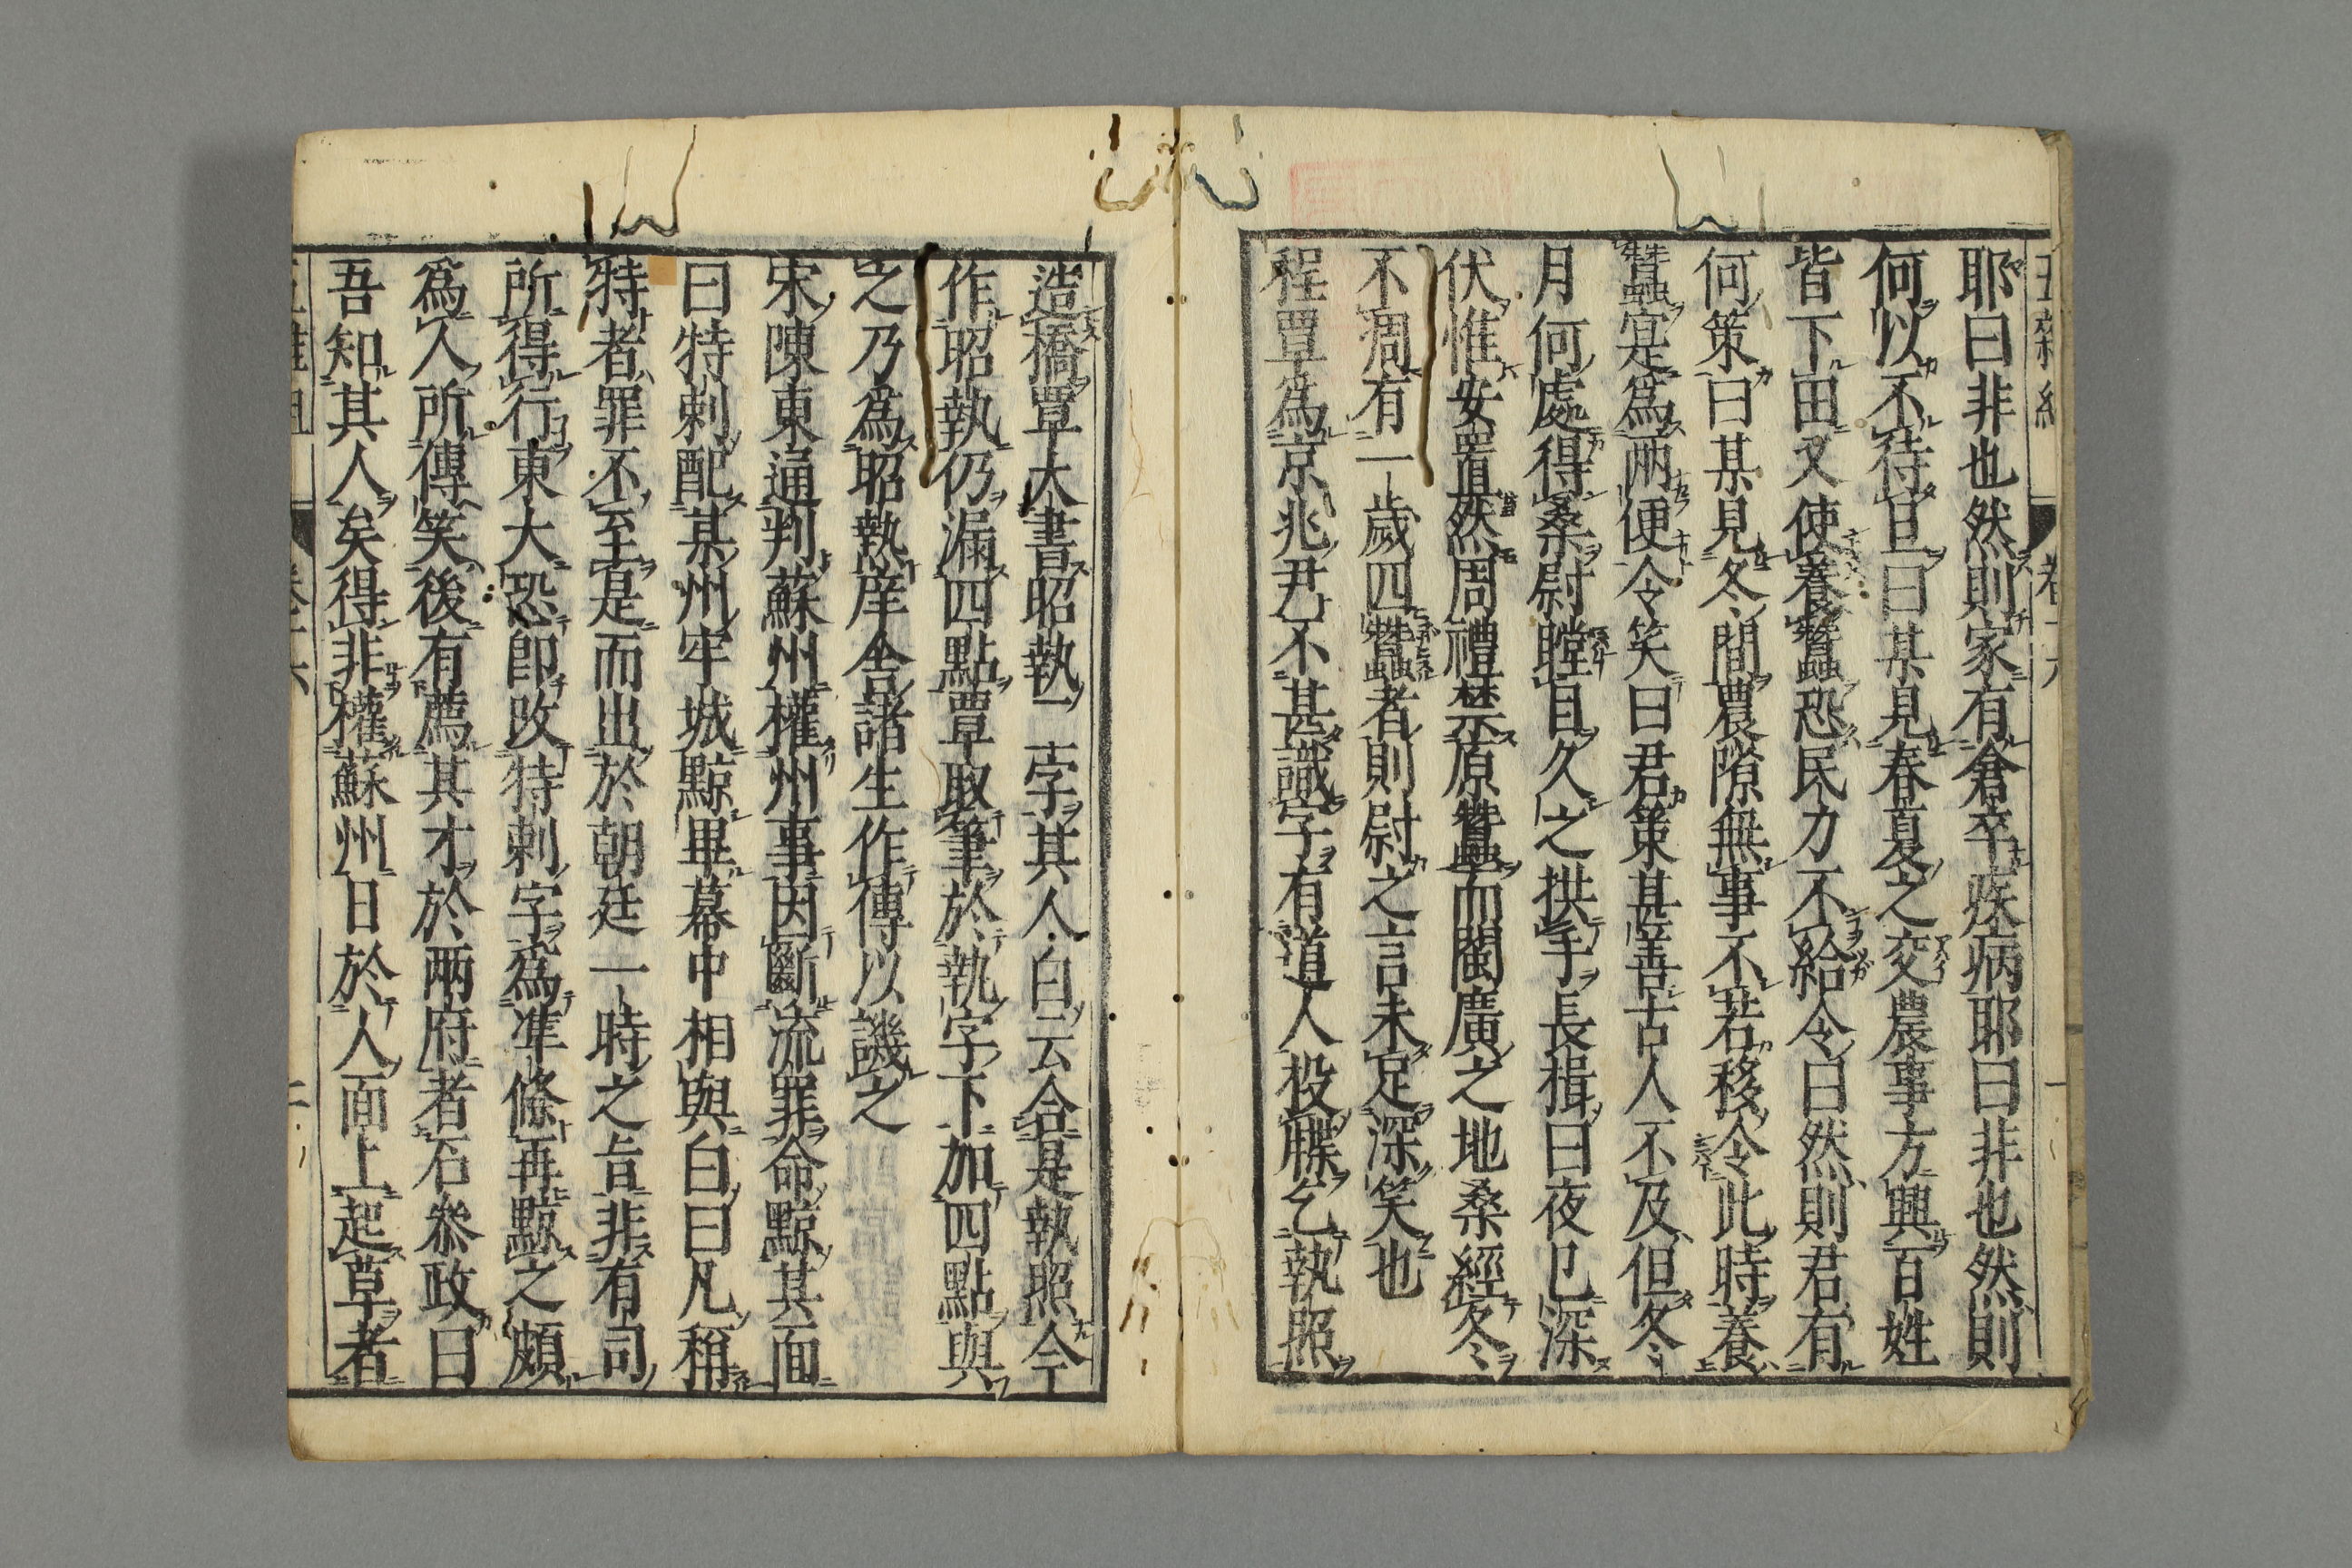 耶曰非也然則家有倉卒疾病耶曰非也然則
何以不待旦曰某見春夏之交農事方興百姓
皆下田又使養蠶恐民力不給令曰然則君有
何策曰某見冬間農隙無事不若移令此時養
蠶寔為兩便令笑曰君策甚善古人不及但冬
月何處得桑尉瞠目久之拱手長揖曰夜已深
伏惟安置然周禮禁原蠶而閩廣之地桑經冬
不凋有一歲四蠶者則尉之言未足深笑也
程覃為京兆尹不甚識字有道人投牒乞執照
造橋覃大書昭執二字其人白云合是執照今
作昭執仍漏四點覃取筆於執字下加四點與
之乃為昭熱庠舍諸生作傳以譏之
宋陳東通判蘇州權州事因斷流罪命黥其面
曰特刺配某州牢城黥畢幕中相與白曰凡稱
特者罪不至是而出於朝廷一時之旨非有司
所得行東大恐即改特刺字為準條再黥之頗
為人所傳笑後有薦其才於兩府者石參政曰
吾知其人矣得非權蘇州日於人面上起草者